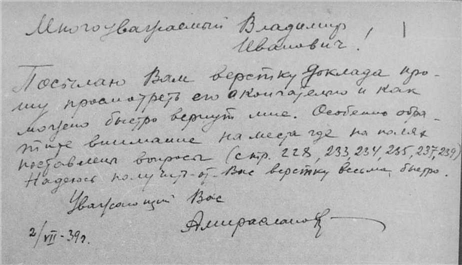 Многоуважаемый Владимир
Иванович!
Посылаю Вам верстку доклада про-
шу просмотреть его окончательно и как
можно быстро вернуть мне. Особенно обра-
тите внимание на места где на полях
поставлены вопросы (стр. 228, 233, 234, 235, 237, 239)
Надеюсь получить от Вас верстку весьма быстро.
Уважающий Вас
2/VII-39г.